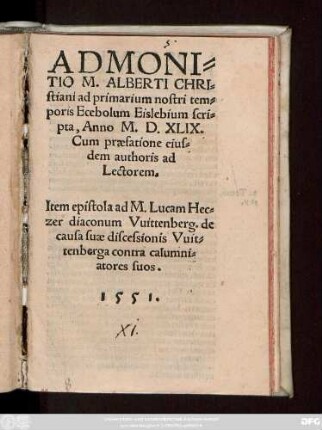 5.
ADMONI=
TIO M. ALBERTI CHRI
stiani ad primarium nostri tem=
poris Ecebolum Eislebium scri=
pta, Anno M. D. XLIX.
Cum præfatione eius=
dem authoris ad
Lectorem.
Item epistola ad M. Lucam Hec=
zer diaconum Vuittenberg. de
causa suæ discessionis Vuit=
tenberga contra calumni=
atores suos.
1551.
XI.
DFG